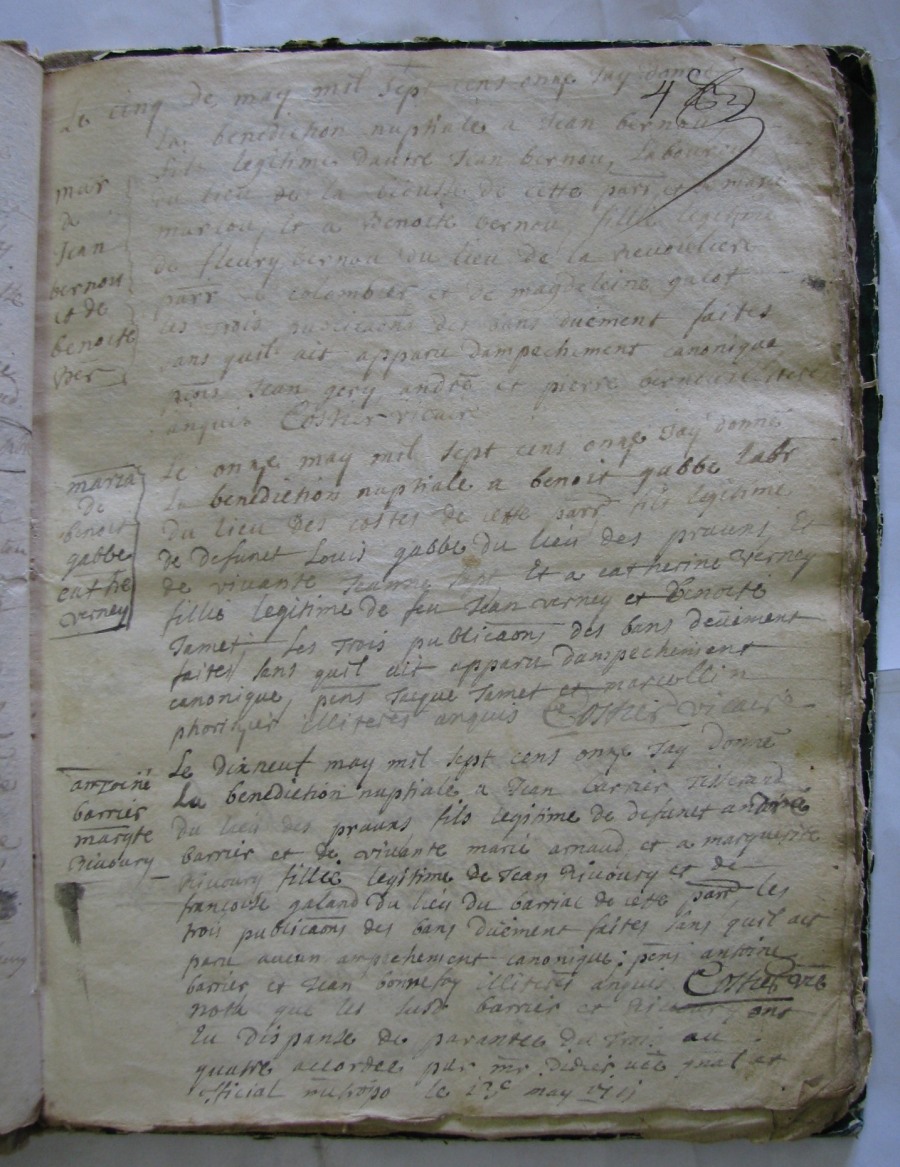 4
Le cinq de may mil sept cens onze Jay donné
la benediction nuptiale a Jean bernou,
fils legitime dautre Jean bernou, laboureur
du lieu de la de cette parr et a marie
mariou, et a Benoite bernou fillie legitime
de fleury bernou du lieu de la Revoulieri
parr de colombier et de magdeleine galot
les trois publicaons des bans duement faites
sans quil ait apparu dampechement canonique
pens Jean gery, andré et pierre
anquis Costier vicaire
mar
de
Jean
bernou
et de
benoite
Ber
Le onze may mil sept cens onze Jay donné
La benediction nuptiale a benoit gabbe labr
du lieu des costes de cette parr fils legitime
de defunct Louis gabbe du lieu des prauns, Et
de vivante Jeanne Et a catherine verney
fillie legitime de feu Jean verney et Benoite
Jamet, Les trois publicaons des bans deüement
faites sans quil ait apparu dampechement
canonique, pens Jaque Jamet et marcellin
illiteres anquis Costier vicaire
maria
de
benoit
gabbe
cathe
verney
Le dixneuf may mil sept cens onze Jay donné
La benediction nuptiale a Jean barrier tisserand
du lieu des prauns fils legitime de defunct andré
barrier et de vivante marie arnaud et a marguerite
Rivoury fillie legitime de Jean Rivoury et de
françoise galand du lieu du barrial de cete parr les
trois publicaons des bans duement faites sans quil ait
paru aucun anpechement canonique: pens antoine
barrier et Jean bonnefoy illiteres anquis Costier vre
nota que les susd barrier et Rivoury ont
Eu dispanse de parantée du trois au
quatre accordée par mr didier gnal et
official le 17e may 1711
antoine
barrier
margte
Rivoury